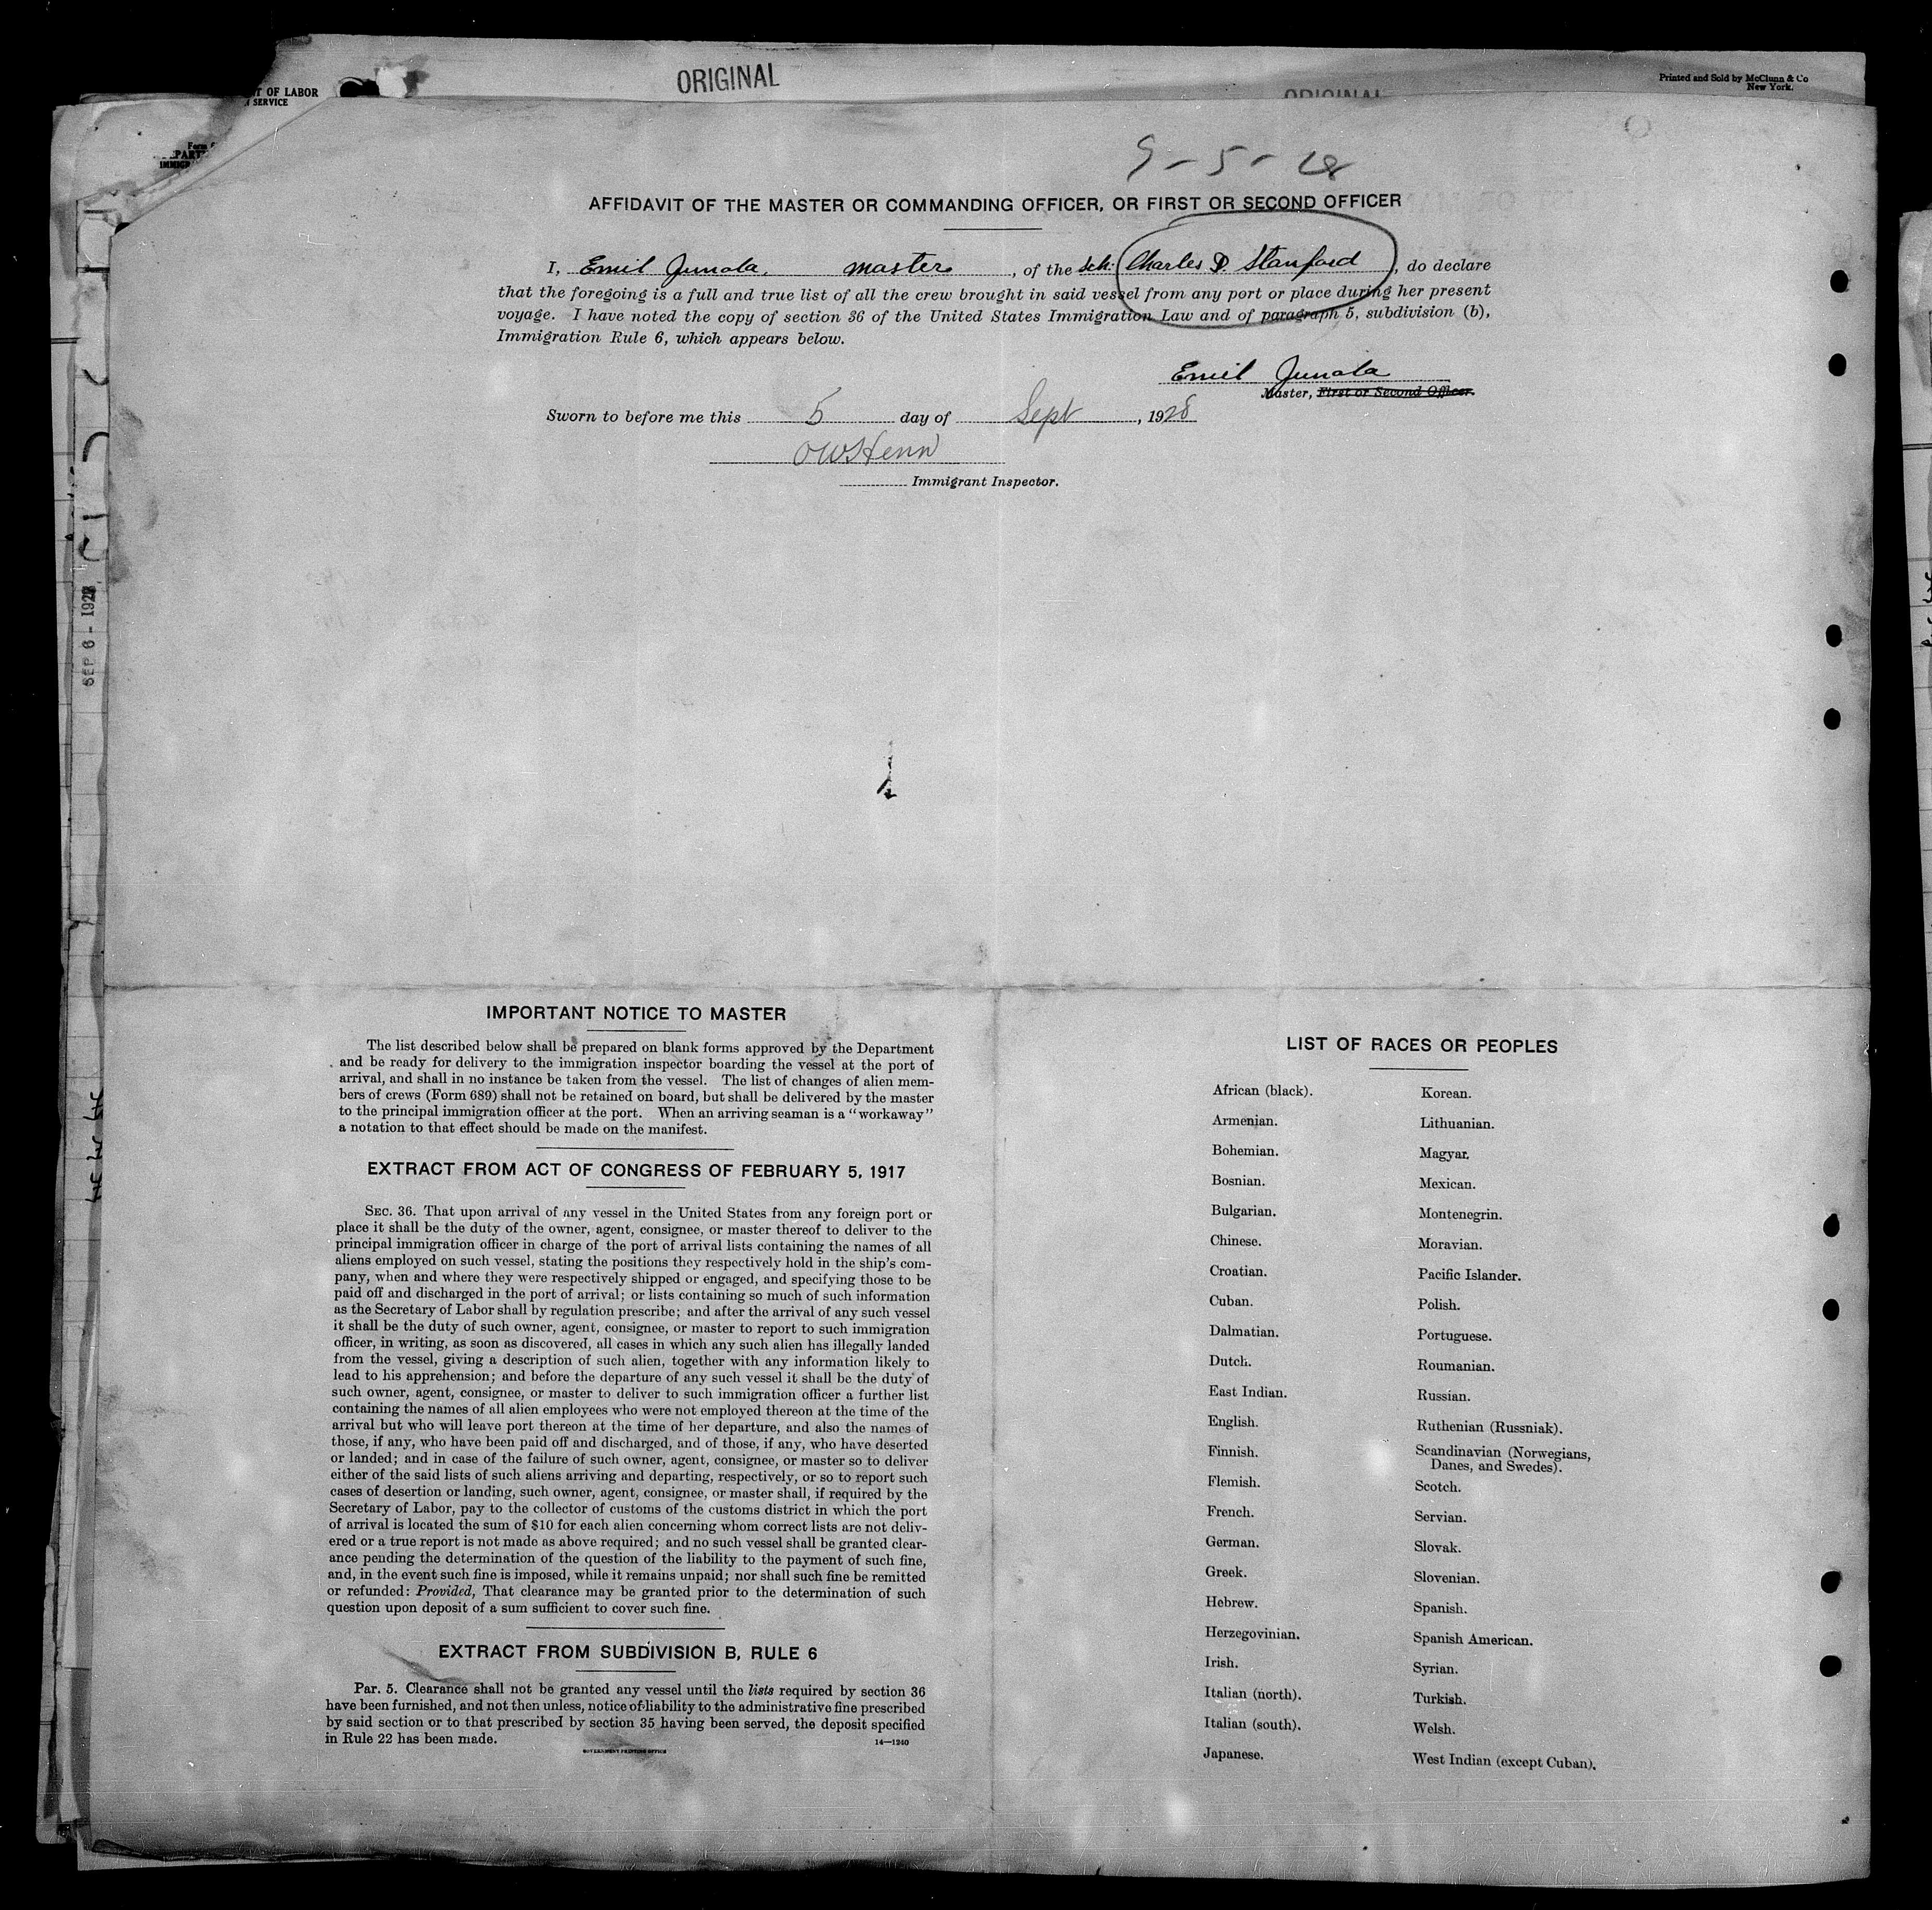 ORIGINAL
Printed and Sold by McClunn & Co
New York.
T OF LABOR
SERVICE
ORIGINAL
9-5-28
AFFIDAVIT OF THE MASTER OR COMMANDING OFFICER, OR FIRST OR SECOND OFFICER
I, Emil Junola, master, of the Sch. Charles D. Stanford, do declare
that the foregoing is a full and true list of all the crew brought in said vessel from any port or place during her present
voyage. I have noted the copy of section 36 of the United States Immigration Law and of paragraph 5, subdivision (b),
Immigration Rule 6, which appears below.
Emil Junola
Master, First or Second Officer.
Sworn to before me this 5 day of Sept, 1928
OWHenn
Immigrant Inspector.
SEP 6 - 1928
IMPORTANT NOTICE TO MASTER
The list described below shall be prepared on blank forms approved by the Department
and be ready for delivery to the immigration inspector boarding the vessel at the port of
arrival, and shall in no instance be taken from the vessel. The list of changes of alien mem-
bers of crews (Form 689) shall not be retained on board, but shall be delivered by the master
to the principal immigration officer at the port. When an arriving seaman is a "workaway"
a notation to that effect should be made on the manifest.
EXTRACT FROM ACT OF CONGRESS OF FEBRUARY 5, 1917
SEC. 36. That upon arrival of any vessel in the United States from any foreign port or
place it shall be the duty of the owner, agent, consignee, or master thereof to deliver to the
principal immigration officer in charge of the port of arrival lists containing the names of all
aliens employed on such vessel, stating the positions they respectively hold in the ship's com-
pany, when and where they were respectively shipped or engaged, and specifying those to be
paid off and discharged in the port of arrival; or lists containing so much of such information
as the Secretary of Labor shall by regulation prescribe; and after the arrival of any such vessel
it shall be the duty of such owner, agent, consignee, or master to report to such immigration
officer, in writing, as soon as discovered, all cases in which any such alien has illegally landed
from the vessel, giving a description of such alien, together with any information likely to
lead to his apprehension; and before the departure of any such vessel it shall be the duty of
such owner, agent, consignee, or master to deliver to such immigration officer a further list
containing the names of all alien employees who were not employed thereon at the time of the
arrival but who will leave port thereon at the time of her departure, and also the names of
those, if any, who have been paid off and discharged, and of those, if any, who have deserted
or landed; and in case of the failure of such owner, agent, consignee, or master so to deliver
either of the said lists of such aliens arriving and departing, respectively, or so to report such
cases of desertion or landing, such owner, agent, consignee, or master shall, if required by the
Secretary of Labor, pay to the collector of customs of the customs district in which the port
of arrival is located the sum of $10 for each alien concerning whom correct lists are not deliv-
ered or a true report is not made as above required; and no such vessel shall be granted clear-
ance pending the determination of the question of the liability to the payment of such fine,
and, in the event such fine is imposed, while it remains unpaid; nor shall such fine be remitted
or refunded: Provided, That clearance may be granted prior to the determination of such
question upon deposit of a sum sufficient to cover such fine.
EXTRACT FROM SUBDIVISION B, RULE 6
Par. 5. Clearance shall not be granted any vessel until the lists required by section 36
have been furnished, and not then unless, notice of liability to the administrative fine prescribed
by said section or to that prescribed by section 35 having been served, the deposit specified
in Rule 22 has been made.
14—1240
GOVERNMENT PRINTING OFFICE
LIST OF RACES OR PEOPLES
African (black).
Armenian.
Bohemian.
Bosnian.
Bulgarian.
Chinese.
Croatian.
Cuban.
Dalmatian.
Dutch.
East Indian.
English.
Finnish.
Flemish.
French.
German.
Greek.
Hebrew.
Herzegovinian.
Irish.
Italian (north).
Italian (south).
Japanese.
Korean.
Lithuanian.
Magyar.
Mexican.
Montenegrin.
Moravian.
Pacific Islander.
Polish.
Portuguese.
Roumanian.
Russian.
Ruthenian (Russniak).
Scandinavian (Norwegians,
Danes, and Swedes).
Scotch.
Servian.
Slovak.
Slovenian.
Spanish.
Spanish American.
Syrian.
Turkish.
Welsh.
West Indian (except Cuban).